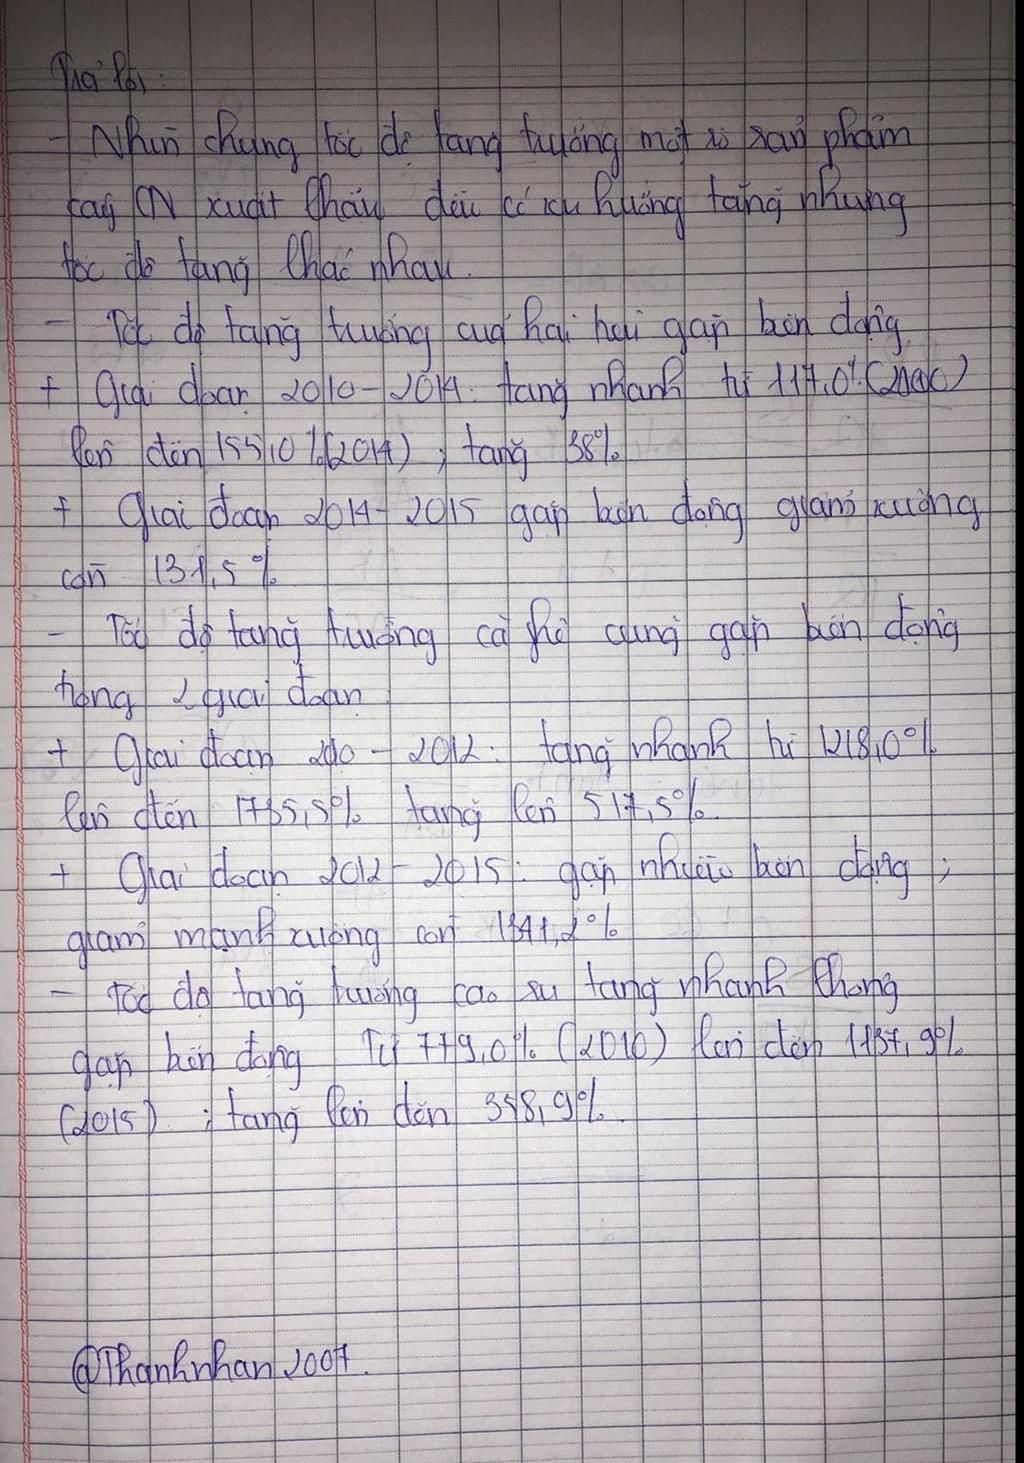 Trả lời:
- Nhìn chung tốc độ tăng trưởng một số sản phẩm
cây CN xuất khẩu đều có xu hướng tăng nhưng
tốc độ tăng khác nhau.
- Tốc độ tăng trưởng của hai hồi gặp biến động
+ Giai đoạn 2010-2014: tăng nhanh từ 117,0% (2010)
lên đến 155,0% (2014), tăng 38%
+ Giai đoạn 2014-2015 gặp biến động giảm xuống
còn 131,5%
- Tốc độ tăng trưởng cà phê cũng gặp biến động
trong 2 giai đoạn
+ Giai đoạn 2010-2012: tăng nhanh từ 1218,0%
lên đến 1735,5% tăng lên 517,5%.
+ Giai đoạn 2012-2015: gặp nhiều biến động,
giảm mạnh xuống còn 1341,2%
- Tốc độ tăng trưởng cao su tăng nhanh không
gặp biến động Từ 779,0% (2010) lên đến 1137,9%
(2015); tăng lên đến 358,9%.
@Thanhnhan2007.